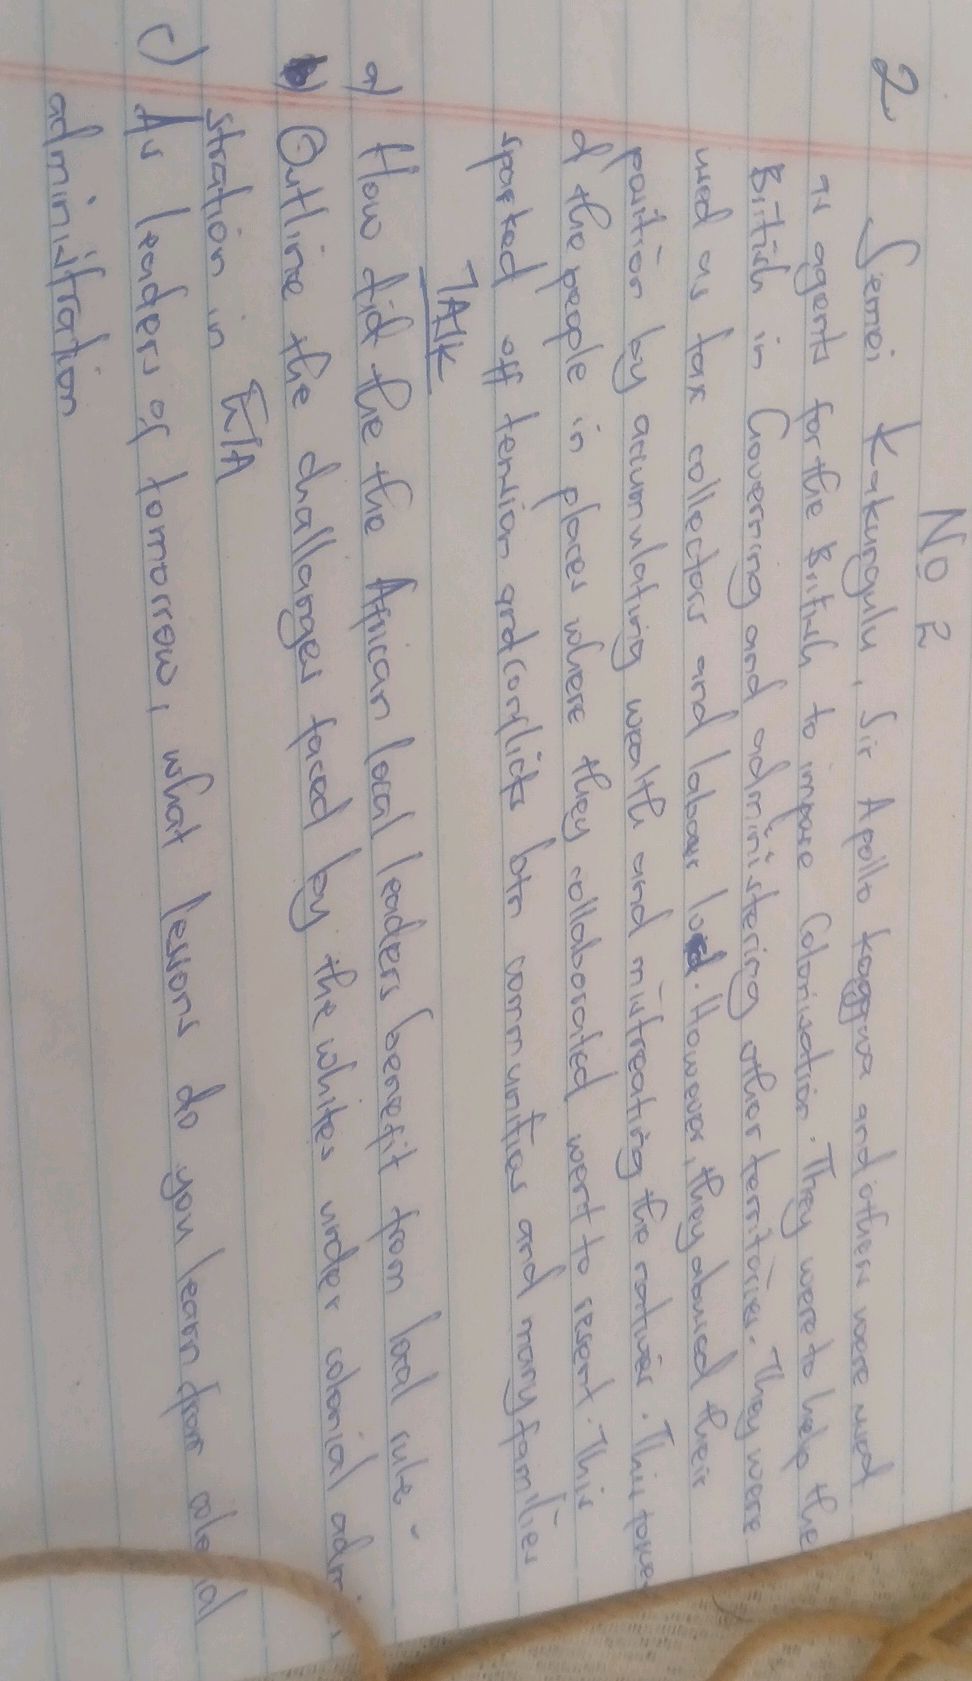 No 2
2 Semei Kakungulu, Sir Apollo Kaggwa and others were used
as agents for the British to impose Colonisation. They were to help the
British in Governing and administering other territories. They were
used as tax collectors and labour lord. However, they abused their
position by accumulating wealth and mistreating the natives. This
of the people in places where they collaborated went to resent. This
sparked off tension and conflicts btn communities and many families
TASK
a) How did the the African local leaders benefit from local rule.
b) Outline the challanges faced by the whites under colonial admi
stration in E/A
c) As leaders of tomorrow, what lessons do you learn from colonial
administration